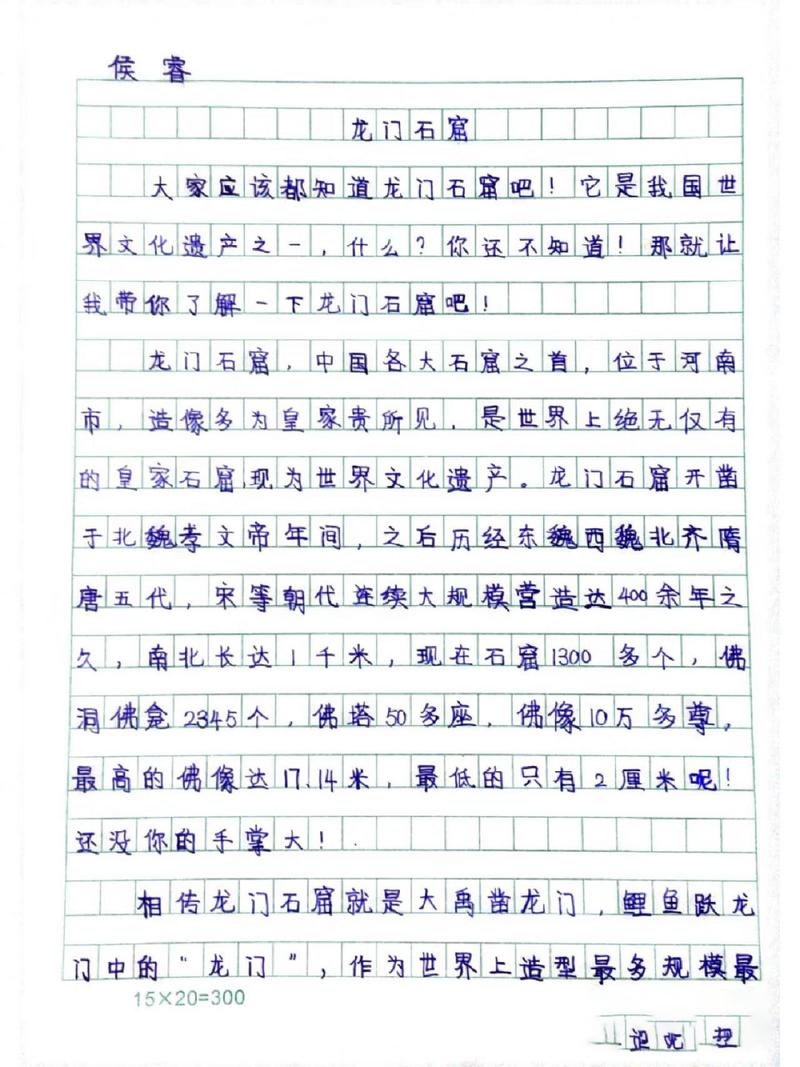 侯睿
龙门石窟
大家应该都知道龙门石窟吧！它是我国世
界文化遗产之一，什么？你还不知道！那就让
我带你了解一下龙门石窟吧！
龙门石窟，中国各大石窟之首，位于河南
市，造像多为皇家贵所见，是世界上绝无仅有
的皇家石窟，现为世界文化遗产。龙门石窟开凿
于北魏孝文帝年间，之后历经东魏西魏北齐隋
唐五代，宋等朝代连续大规模营造达400余年之
久，南北长达1千米，现在石窟1300多个，佛
洞佛龛2345个，佛塔50多座，佛像10万多尊。
最高的佛像达17.14米，最低的只有2厘米呢！
还没你的手掌大！
相传龙门石窟就是大禹凿龙门，鲤鱼跃龙
门中的“龙门”，作为世界上造型最多规模最
15×20=300